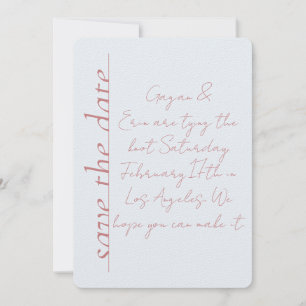 save the date
Gagan &
Erin are tying the
knot Saturday
February 17th in
Los Angeles. We
hope you can make it